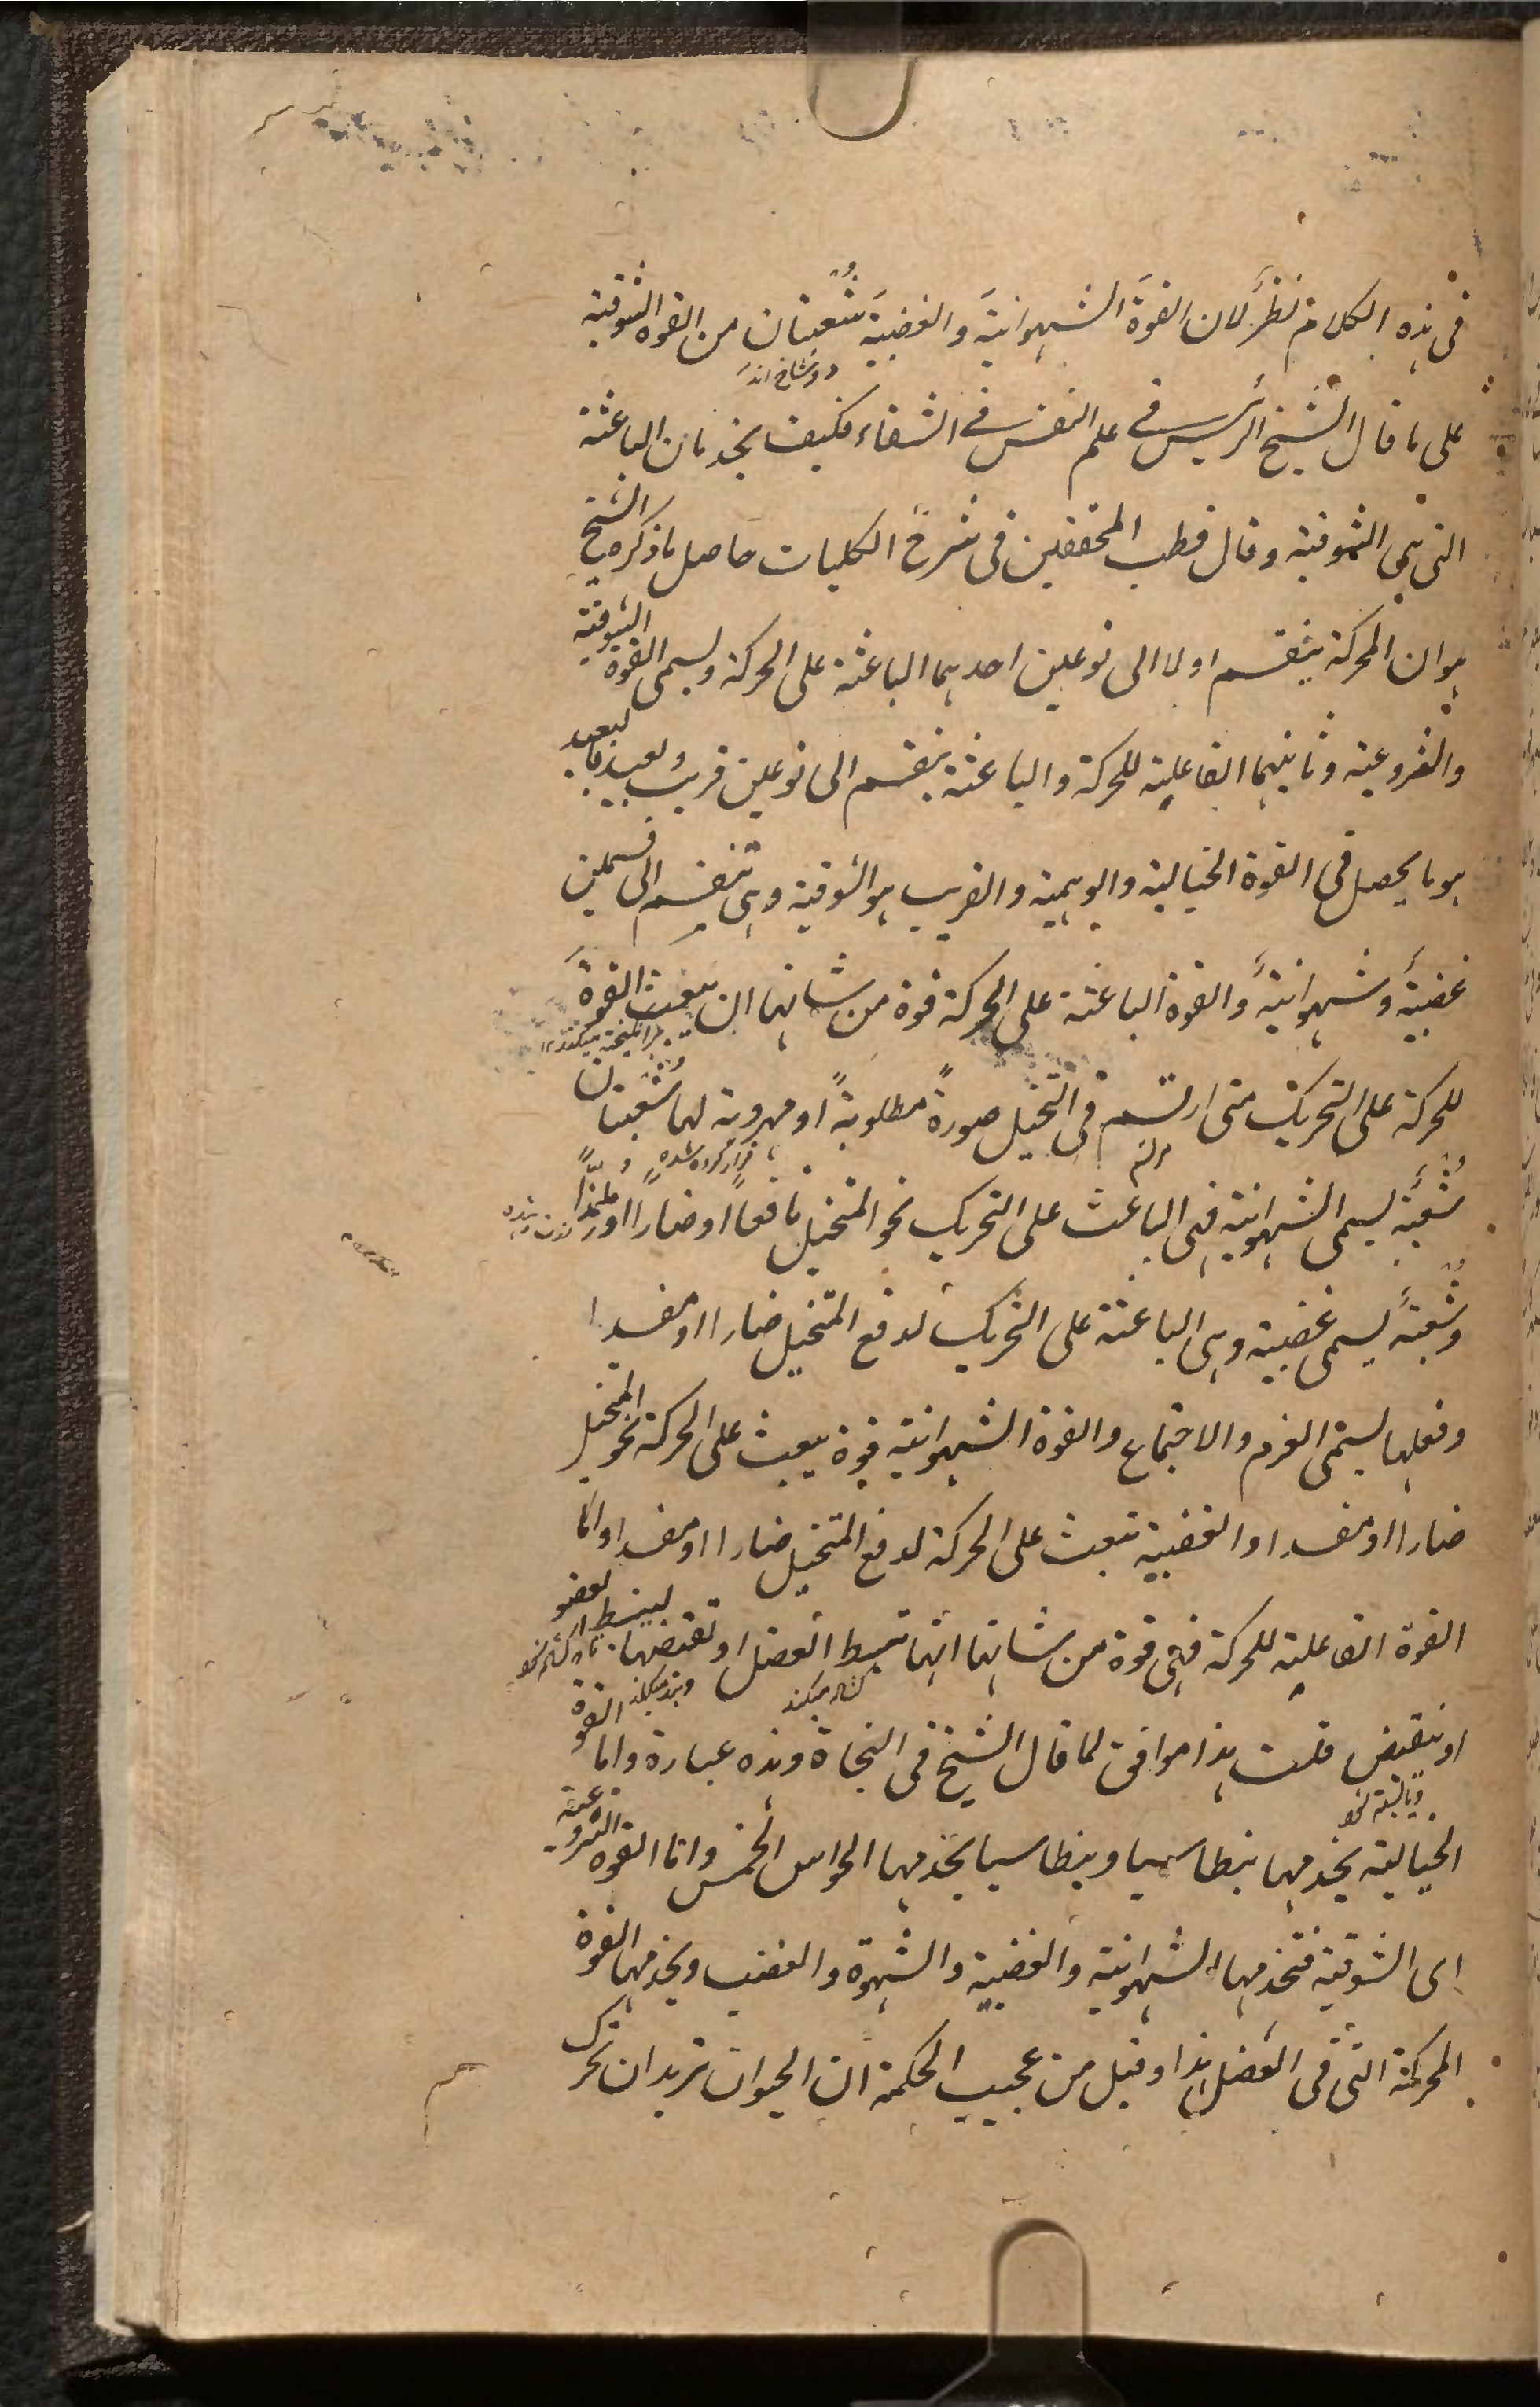 فى هذه الكلام نظرٌ لان القوةَ الشهوانيةَ والغضبيةَ شُعبتان من القوه الشوقية
دو شاخ اند
على ما قال الشيخ الرئيس فى علم النفس فى الشفاء فكيف يخدمان الباعثة
التى هى الشوقية وقال قطب المحققين فى شرح الكليات حاصل ما ذكره الشيخ
هو ان المحركة ينقسم اولا الى نوعين احدهما الباعثة على الحركة ويسمى القوة الشوقية
والنزوعية وثانيهما الفاعلية للحركة والباعثة ينقسم الى نوعين قريب وبعيد فالبعيد
هو ما يحصل فى القوة الخيالية والوهمية والقريب هو الشوقية وهى تنقسم الى قسمين
غضبيةَ وشهوانيةَ والقوة الباعثة على الحركة قوة من شانها ان تبعث القوةَ
برانگيخته ميكند
للحركة على التحريك متى ارتسم فى التخيل صورةً مطلوبةً او مهروبة لها شُعبتان
فرار كرده شده
شُعبة يسمى الشهوانية فهى الباعث على التحريك نحو المتخيل نافعاً او ضاراً او ملذّاً
وشُعبةَ يسمى غضبية وهى الباعثة على التحريك لدفع المتخيل ضارا او مفسدا
وفعلها يسمى العزم والاجتماع والقوة الشهوانية قوة يبعث على الحركة نحو المتخيل
ضارا او مفسدا والغضبية تبعث على الحركة لدفع المتخيل ضارا او مفسدا واما
القوة الفاعلية للحركة فهى قوة من شانها انها تبسط العضل او تقبضها لينبسط العضو
كشاده ميكند
او ينقبض قلت هذا موافق لما قال الشيخ فى النجاة وهذه عبارة واما القوة
الخيالية يخدمها بنطاسيا وبنطاسيا يخدمها الحواس الخمس واما القوه النزوعية
اى الشوقية فتخدمها الشهوانية والغضبية والشهوة والغضب ويخدمها القوة
المحركة التى فى العضل هذا وقيل من عجيب الحكمة ان الحيوان تريد ان تحرك